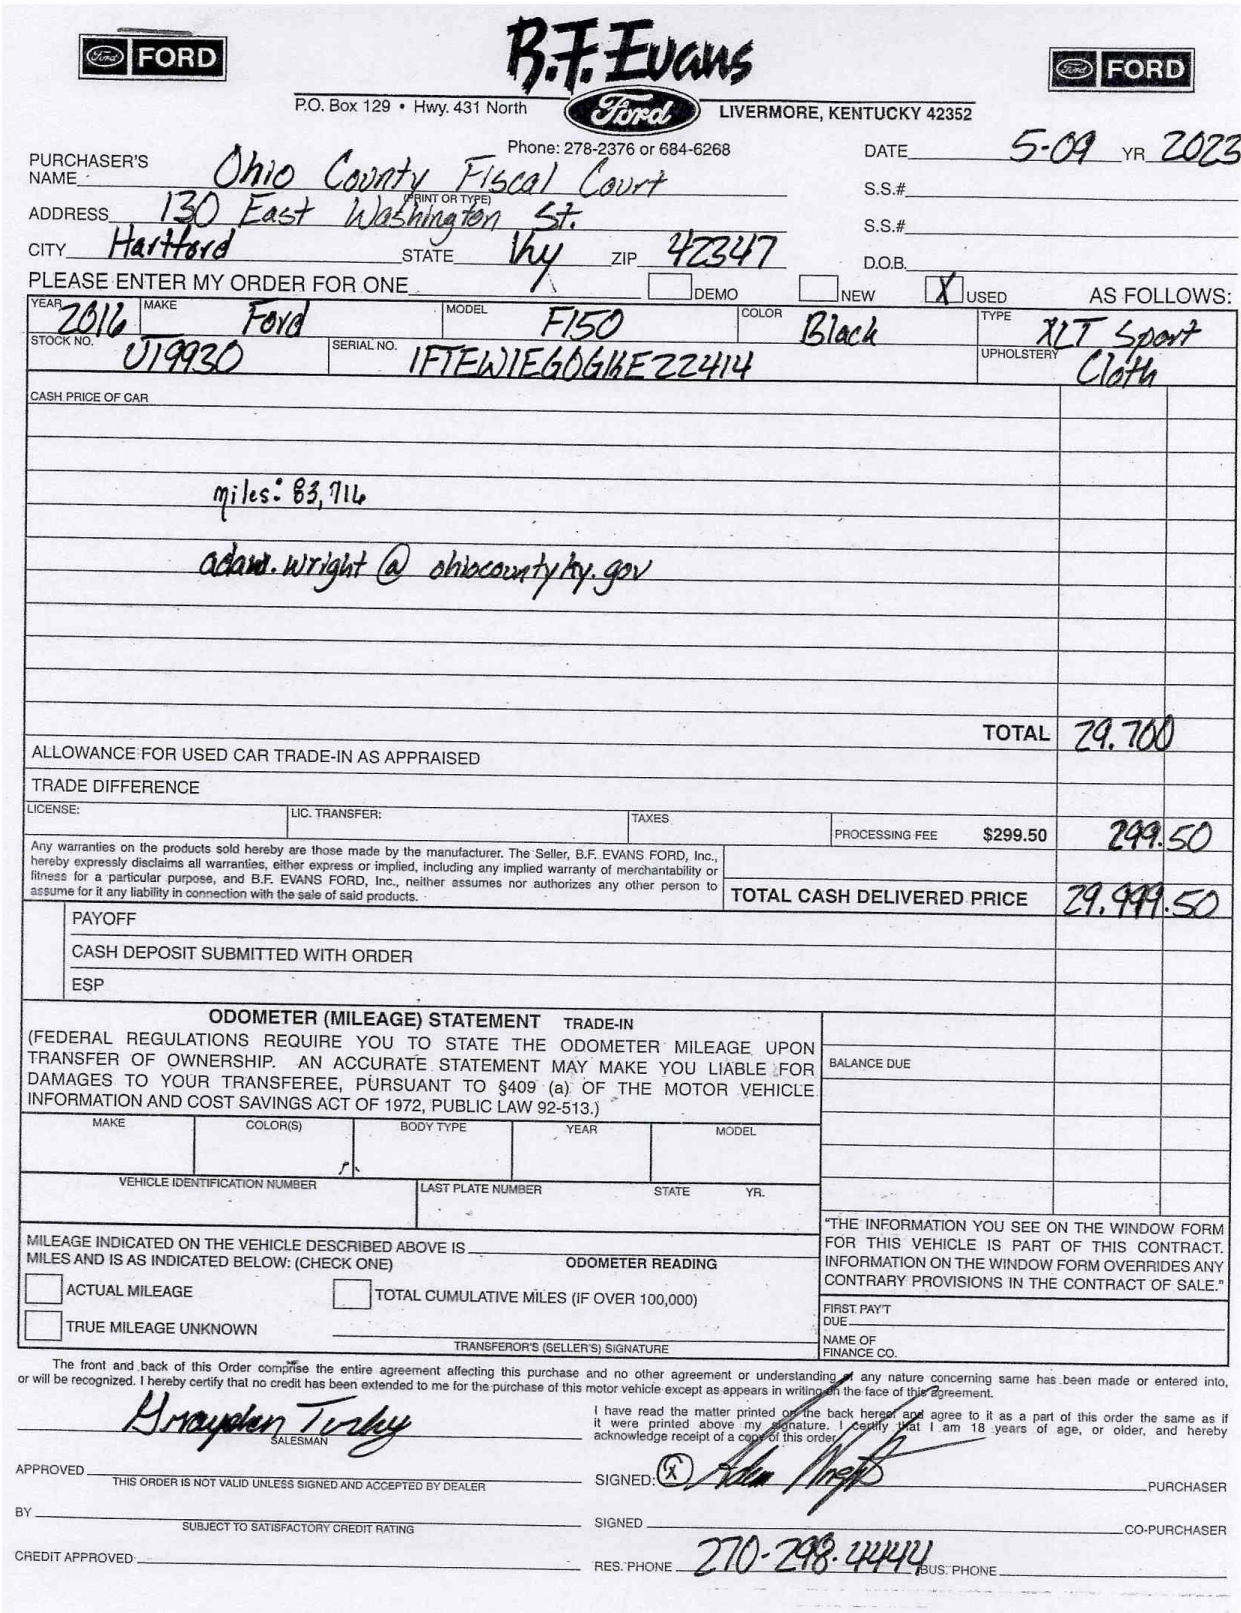 Ford FORD
B.F. Evans
Ford FORD
P.O. Box 129 • Hwy. 431 North Ford LIVERMORE, KENTUCKY 42352
Phone: 278-2376 or 684-6268
DATE 5-09 YR 2023
PURCHASER'S NAME Ohio County Fiscal Court
(PRINT OR TYPE)
S.S.#
ADDRESS 130 East Washington St.
S.S.#
CITY Hartford STATE Ky ZIP 42347
D.O.B.
PLEASE ENTER MY ORDER FOR ONE DEMO NEW X USED AS FOLLOWS:
YEAR 2016 MAKE Ford MODEL F150 COLOR Black TYPE XLT Sport
STOCK NO. UT9930 SERIAL NO. 1FTEW1EG0GKE22414 UPHOLSTERY Cloth
CASH PRICE OF CAR
miles: 83,716
adam.wright @ ohiocountyky.gov
TOTAL 29.700
ALLOWANCE FOR USED CAR TRADE-IN AS APPRAISED
TRADE DIFFERENCE
LICENSE: LIC. TRANSFER: TAXES PROCESSING FEE $299.50 299.50
Any warranties on the products sold hereby are those made by the manufacturer. The Seller, B.F. EVANS FORD, Inc.,
hereby expressly disclaims all warranties, either express or implied, including any implied warranty of merchantability or
fitness for a particular purpose, and B.F. EVANS FORD, Inc., neither assumes nor authorizes any other person to
assume for it any liability in connection with the sale of said products.
TOTAL CASH DELIVERED PRICE 29.999.50
PAYOFF
CASH DEPOSIT SUBMITTED WITH ORDER
ESP
ODOMETER (MILEAGE) STATEMENT TRADE-IN
(FEDERAL REGULATIONS REQUIRE YOU TO STATE THE ODOMETER MILEAGE UPON
TRANSFER OF OWNERSHIP. AN ACCURATE STATEMENT MAY MAKE YOU LIABLE FOR
DAMAGES TO YOUR TRANSFEREE, PURSUANT TO §409 (a) OF THE MOTOR VEHICLE
INFORMATION AND COST SAVINGS ACT OF 1972, PUBLIC LAW 92-513.)
BALANCE DUE
MAKE COLOR(S) BODY TYPE YEAR MODEL
VEHICLE IDENTIFICATION NUMBER LAST PLATE NUMBER STATE YR.
MILEAGE INDICATED ON THE VEHICLE DESCRIBED ABOVE IS
MILES AND IS AS INDICATED BELOW: (CHECK ONE) ODOMETER READING
ACTUAL MILEAGE TOTAL CUMULATIVE MILES (IF OVER 100,000)
TRUE MILEAGE UNKNOWN
TRANSFEROR'S (SELLER'S) SIGNATURE
"THE INFORMATION YOU SEE ON THE WINDOW FORM
FOR THIS VEHICLE IS PART OF THIS CONTRACT.
INFORMATION ON THE WINDOW FORM OVERRIDES ANY
CONTRARY PROVISIONS IN THE CONTRACT OF SALE."
FIRST PAY'T
DUE
NAME OF
FINANCE CO.
The front and back of this Order comprise the entire agreement affecting this purchase and no other agreement or understanding of any nature concerning same has been made or entered into,
or will be recognized. I hereby certify that no credit has been extended to me for the purchase of this motor vehicle except as appears in writing on the face of this agreement.
I have read the matter printed on the back hereof and agree to it as a part of this order the same as if
it were printed above my signature. I certify that I am 18 years of age, or older, and hereby
acknowledge receipt of a copy of this order.
SALESMAN
APPROVED
THIS ORDER IS NOT VALID UNLESS SIGNED AND ACCEPTED BY DEALER
SIGNED: X Adam Wright PURCHASER
BY
SUBJECT TO SATISFACTORY CREDIT RATING
SIGNED CO-PURCHASER
CREDIT APPROVED
RES. PHONE 270-298-4444 BUS. PHONE